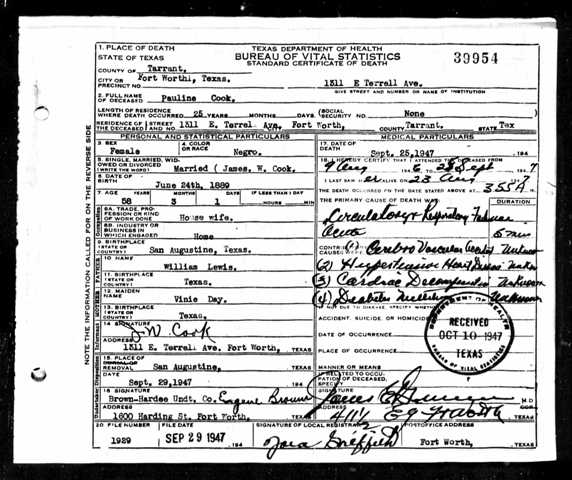 NOTE THE INFORMATION CALLED FOR ON THE REVERSE SIDE
TEXAS DEPARTMENT OF HEALTH
BUREAU OF VITAL STATISTICS
STANDARD CERTIFICATE OF DEATH
39954
1. PLACE OF DEATH
STATE OF TEXAS
COUNTY OF Tarrant,
CITY OR PRECINCT NO. Fort Worth, Texas.
1311 E Terrell Ave.
GIVE STREET AND NUMBER OR NAME OF INSTITUTION
2. FULL NAME OF DECEASED Pauline Cook.
LENGTH OF RESIDENCE WHERE DEATH OCCURRED 25 YEARS MONTHS DAYS
(SOCIAL SECURITY NO. None
RESIDENCE OF THE DECEASED STREET AND NO. 1311 E. Terrel Ave. Fort Worth, COUNTY Tarrant, STATE Tex
PERSONAL AND STATISTICAL PARTICULARS
3. SEX Female
4. COLOR OR RACE Negro.
5. SINGLE, MARRIED, WIDOWED OR DIVORCED (WRITE THE WORD) Married (James. W. Cook.
6. DATE OF BIRTH June 24th, 1889
7. AGE YEARS MONTHS DAYS IF LESS THAN 1 DAY
58 3 1 HOURS MIN
8A. TRADE, PROFESSION OR KIND OF WORK DONE House wife.
8B. INDUSTRY OR BUSINESS IN WHICH ENGAGED Home
9. BIRTHPLACE (STATE OR COUNTRY) San Augustine, Texas.
10. NAME William Lewis.
11. BIRTHPLACE (STATE OR COUNTRY) Texas.
12. MAIDEN NAME Vinie Day.
13. BIRTHPLACE (STATE OR COUNTRY) Texas.
14. SIGNATURE J. W. Cook
ADDRESS 1311 E. Terrell Ave. Fort Worth, TEXAS
15. PLACE OF BURIAL OR REMOVAL San Augustine, TEXAS
DATE Sept. 29,1947
16 SIGNATURE Brown-Hardee Undt. Co. Eugene Brown
ADDRESS 1600 Harding St. Fort Worth, TEXAS
MEDICAL PARTICULARS
17. DATE OF DEATH Sept. 25,1947 194
18. I HEREBY CERTIFY THAT I ATTENDED THE DECEASED FROM
7 Aug 25 Sept 7
I LAST SAW ALIVE ON 23 Aug
THE DEATH OCCURRED ON THE DATE STATED ABOVE AT 355 A
THE PRIMARY CAUSE OF DEATH WAS: DURATION
Circulatory Respiratory Failure
Acute 5 min
CONTRIBUTORY CAUSES (1) Cerebro Vascular Accident Unknown
(2) Hypertensive Heart Disease Unkn
(3) Cardiac Decompensation Unknown
(4) Diabetes Mellitus Unknown
IF NOT DUE TO DISEASE, SPECIFY WHETHER:
ACCIDENT, SUICIDE, OR HOMICIDE
DATE OF OCCURRENCE
PLACE OF OCCURRENCE
MANNER OR MEANS
IF RELATED TO OCCUPATION OF DECEASED, SPECIFY
DEPARTMENT OF HEALTH
RECEIVED
OCT 10 1947
TEXAS
BUREAU OF VITAL STATISTICS
SIGNATURE M.D.
ADDRESS 411½ E 9 Ft Worth TEXAS
20 FILE NUMBER 1929
FILE DATE SEP 29 1947 194
SIGNATURE OF LOCAL REGISTRAR Zora Griffith
POSTOFFICE ADDRESS Fort Worth, TEXAS